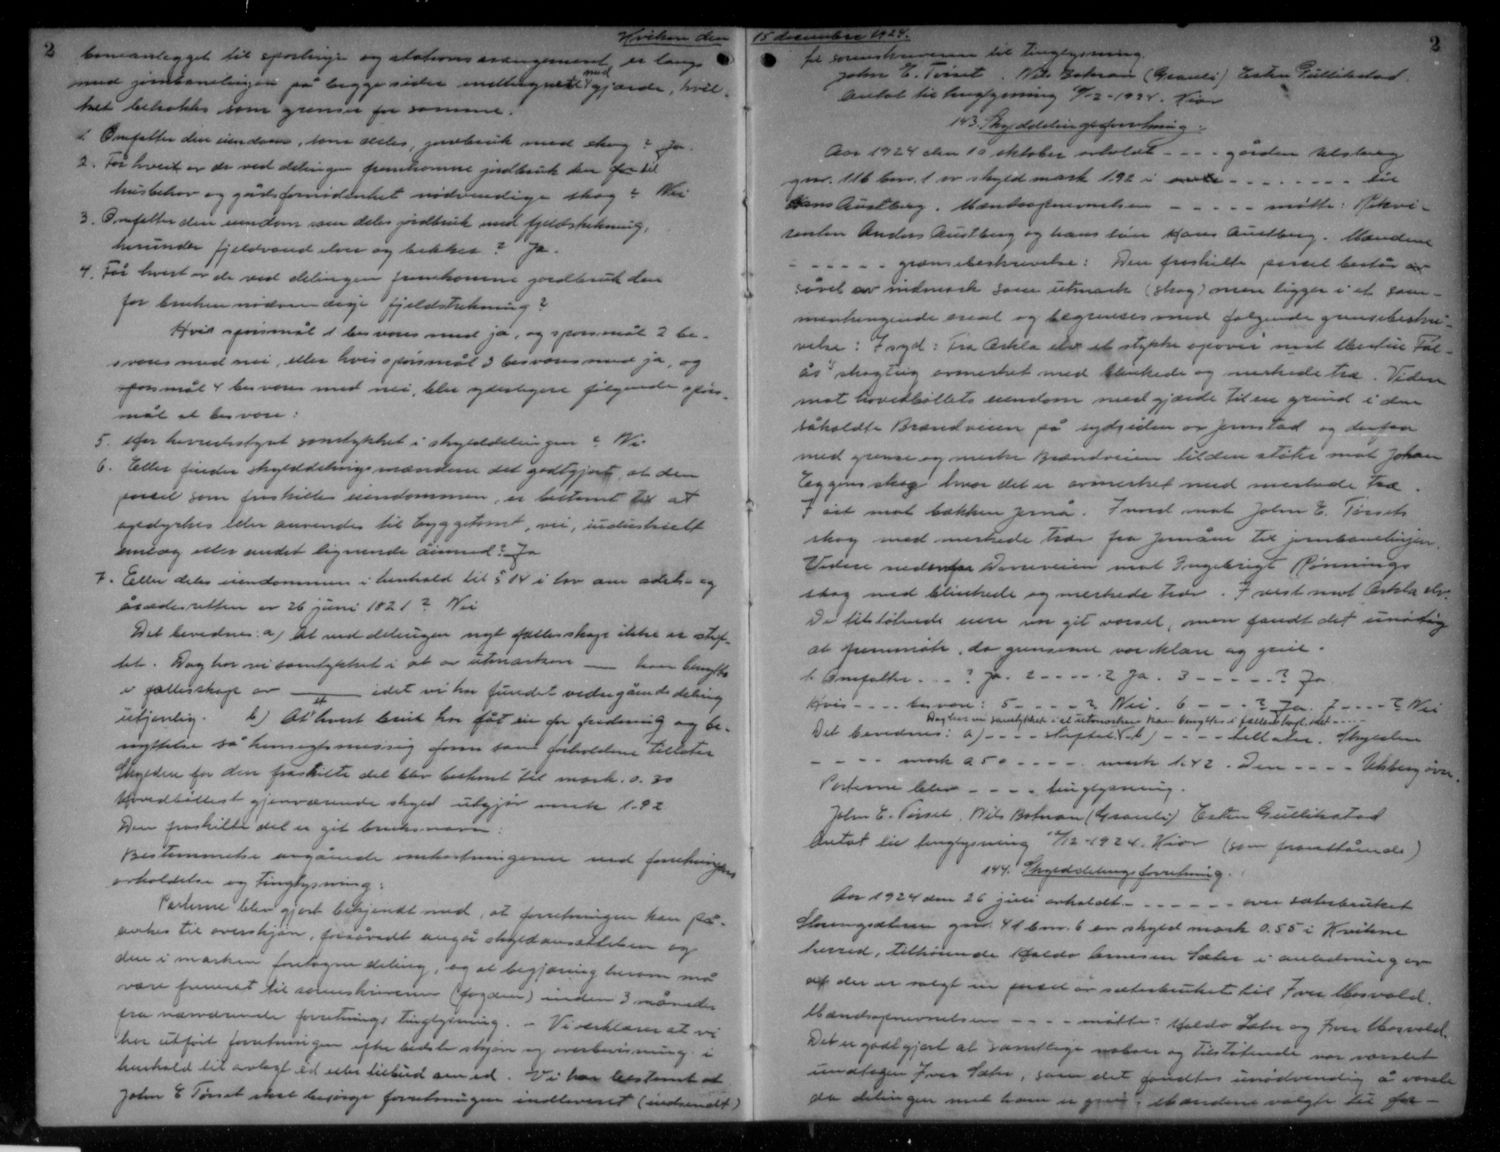 2
Kvikne den 15 desember 1924.
2
baneanlegget til sporlinje og stationsarrangement, er langs
med jernbanelinjen på begge sider indhegnet med gjærde, hvil-
ket betraktes som grense for samme.
1. Omfatter den eiendom, som deles, jordbruk med skog? Ja.
2. Får hvert av de ved delingen fremkomne jordbruk den til
husbehov og gårdsfornødenhet nødvendige skog? Nei
3. Omfatter den eiendom som deles jordbruk med fjeldstrekning,
herunder fjeldvand elver og bekker? Ja.
4. Får hvert av de ved delingen fremkomne jordbruk den
for bruken nødvendige fjeldstrekning?
Hvis spørsmål 1 besvares med ja, og spørsmål 2 be-
svares med nei, eller hvis spørsmål 3 besvares med ja, og
spørsmål 4 besvares med nei, blir yderligere følgende spørs-
mål at besvare:
5. Har herredsstyret samtykket i skylddelingen? Nei
6. Eller finder skylddelingsmændene det godtgjort, at den
parsel som fraskilles eiendommen, er bestemt til at
opdyrkes eller anvendes til byggetomt, vei, industrielt
anlæg eller andet lignende øiemed? Ja
7. Eller deles eiendommen i henhold til § 14 i lov om odels- og
åsædesretten av 26 juni 1821? Nei
Det bevidnes: a) At ved delingen nyt fællesskap ikke er stif-
tet. Dog har vi samtykket i at av utmarken — kan benyttes
i fællesskap av — idet vi har fundet vedrgående deling
utjenlig. b) At hvert bruk har fåt en for fredning og be-
nyttelse så hensigtsmessig form som forholdene tillater
Skylden for den fraskilte del blev bestemt til mark. 0.30
Hovedbøllets gjenværende skyld utgjør mark 1.92
Den fraskilte del er git bruksnavn:
Bestemmelse angående omkostningerne ved forretningens
avholdelse og tinglysning:
Parterne blev gjort bekjendt med, at forretningen kan på-
ankes til overskjøn, forsåvidt angår skyldansættelsen og
den i marken foretagne deling, og at begjæring herom må
være fremsat til sorenskriveren (fogden) inden 3 måneder
fra nærværende forretnings tinglysning. – Vi erklærer at vi
har utført forretningen efter bedste skjøn og overbevisning i
henhold til avlagt ed eller tilbud om ed. Vi har bestemt at
John E Tørset skal besørge forretningen indleveret (indsendt)
til sorenskriveren til tinglysning.
John E. Tørset. Nils Botnan (Grauli) Esten Gullikstad.
Antat til tinglysning 15/12-1924. Kior
143. Skylddelingsforretning.
Aar 1924 den 10 oktober avholdt - - - - gården Ulsberg
gnr. 116 bnr. 1 av skyld mark 1.92 i - - - - - - - - til
Hans Austberg. Mændsopnevnelsen - - - - - møtte: Rekvi-
renten Anders Austberg og hans søn Hans Austberg. Mændene
- - - - - - grænsebeskrivelse: Den fraskilte parsel består av
såvel indmark som utmark (skog) men ligger i et sam-
menhengende areal og begrenses med følgende grensebeskri-
velse: I syd: Fra Orkla elv et stykke opover mot
skogteig avmerket med blinkede og merkede træ. Videre
mot hovedbøllets eiendom med gjærde til en grind i den
såkaldte Brandveien på sydsiden av Jernstad og derfra
med grense og merker Brandveien til den støter mot Johan
Eggens skog hvor det er avmerket med merkede træ.
I øst mot bækken Jernå. I nord mot John E. Tørsets
skog med merkede trær fra Jernåen til jernbanelinjen.
Videre nedenfor Dovreveien mot Ingebrigt Rønnings
skog med blinkede og merkede trær. I vest mot Orkla elv.
De tilstøtende eiere var git varsel, men fandt det unødig
at fremmøte, da grensene var klare og greie.
1. Omfatter - - - ? Ja. 2 - - - - - ? Ja. 3 - - - - - ? Ja.
Hvis - - - - besvare: 5 - - - - - ? Nei. 6 - - - - ? Ja. 7 - - - - ? Nei
Dog har vi samtykket i at utmarken kan benyttes i fællesskap idet - - - -
Det bevidnes: a) - - - - stiftet. b) - - - - - tillater. Skylden
- - - - - mark 0.50 - - - - - mark 1.42. Den - - - - Ulsberg øvre.
Parterne blev - - - - tinglysning.
John E. Tørset, Nils Botnan (Grauli) Esten Gullikstad
Antat til tinglysning 15/12-1924. Kior (som foranstående)
144. Skylddelingsforretning.
Aar 1924 den 26 juni avholdt - - - - - - - over sæterbruket
gnr. 41 bnr. 6 av skyld mark 0.55 i Kvikne
herred, tilhørende Haldo Arnesen Sæter i anledning av
at der er solgt en parsel av sæterbruket til Iver Mosvold.
Mændsopnevnelsen - - - - møtte: Haldo Sæter og Iver Mosvold.
Det er godtgjort at samtlige naboer og tilstøtende var varslet
undtagen Iver Sæter, som det fandtes unødvendig å varsle
da delingen mot ham er grei. Mændene valgte til for-